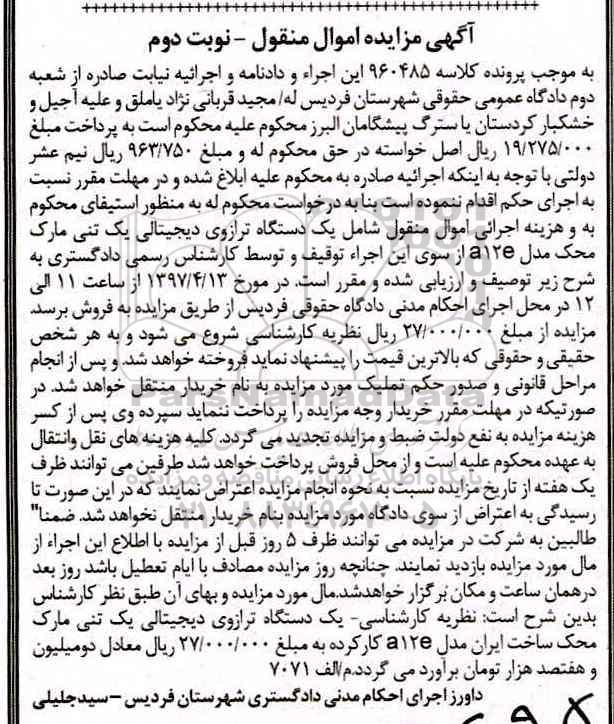 آگهی مزایده اموال منقول - نوبت دوم
به موجب پرونده کلاسه ۹۶۰۴۸۵ این اجراء و دادنامه و اجرائیه نیابت صادره از شعبه
دوم دادگاه عمومی حقوقی شهرستان فردیس له/ مجید قربانی نژاد یاملق و علیه آجیل و
خشکبار کردستان یا سترگ پیشگامان البرز محکوم علیه محکوم است به پرداخت مبلغ
۱۹/۲۷۵/۰۰۰ ریال اصل خواسته در حق محکوم له و مبلغ ۹۶۳/۷۵۰ ریال نیم عشر
دولتی با توجه به اینکه اجرائیه صادره به محکوم علیه ابلاغ شده و در مهلت مقرر نسبت
به اجرای حکم اقدام ننموده است بنا به درخواست محکوم له به منظور استیفای محکوم
به و هزینه اجرائی اموال منقول شامل یک دستگاه ترازوی دیجیتالی یک تنی مارک
محک مدل a۱۲e از سوی این اجراء توقیف و توسط کارشناس رسمی دادگستری به
شرح زیر توصیف و ارزیابی شده و مقرر است. در مورخ ۱۳۹۷/۴/۱۳ از ساعت ۱۱ الی
۱۲ در محل اجرای احکام مدنی دادگاه حقوقی فردیس از طریق مزایده به فروش برسد.
مزایده از مبلغ ۲۷/۰۰۰/۰۰۰ ریال نظریه کارشناسی شروع می شود و به هر شخص
حقیقی و حقوقی که بالاترین قیمت را پیشنهاد نماید فروخته خواهد شد. و پس از انجام
مراحل قانونی و صدور حکم تملیک مورد مزایده به نام خریدار منتقل خواهد شد. در
صورتیکه در مهلت مقرر خریدار وجه مزایده را پرداخت ننماید سپرده وی پس از کسر
هزینه مزایده به نفع دولت ضبط و مزایده تجدید می گردد. کلیه هزینه های نقل وانتقال
به عهده محکوم علیه است و از محل فروش پرداخت خواهد شد طرفین می توانند ظرف
یک هفته از تاریخ مزایده نسبت به نحوه انجام مزایده اعتراض نمایند که در این صورت تا
رسیدگی به اعتراض از سوی دادگاه مورد مزایده بنام خریدار منتقل نخواهد شد. ضمنا"
طالبین به شرکت در مزایده می توانند ظرف ۵ روز قبل از مزایده با اطلاع این اجراء از
مال مورد مزایده بازدید نمایند. چنانچه روز مزایده مصادف با ایام تعطیل باشد روز بعد
درهمان ساعت و مکان برگزار خواهدشد.مال مورد مزایده و بهای آن طبق نظر کارشناس
بدین شرح است: نظریه کارشناسی- یک دستگاه ترازوی دیجیتالی یک تنی مارک
محک ساخت ایران مدل a۱۲e کارکرده به مبلغ ۲۷/۰۰۰/۰۰۰ ریال معادل دومیلیون
و هفتصد هزار تومان برآورد می گردد.م/الف ۷۰۷۱
دادورز اجرای احکام مدنی دادگستری شهرستان فردیس - سیدجلیلی
ParsNamadData
پایگاه اطلاع رسانی مناقصه و مزایده